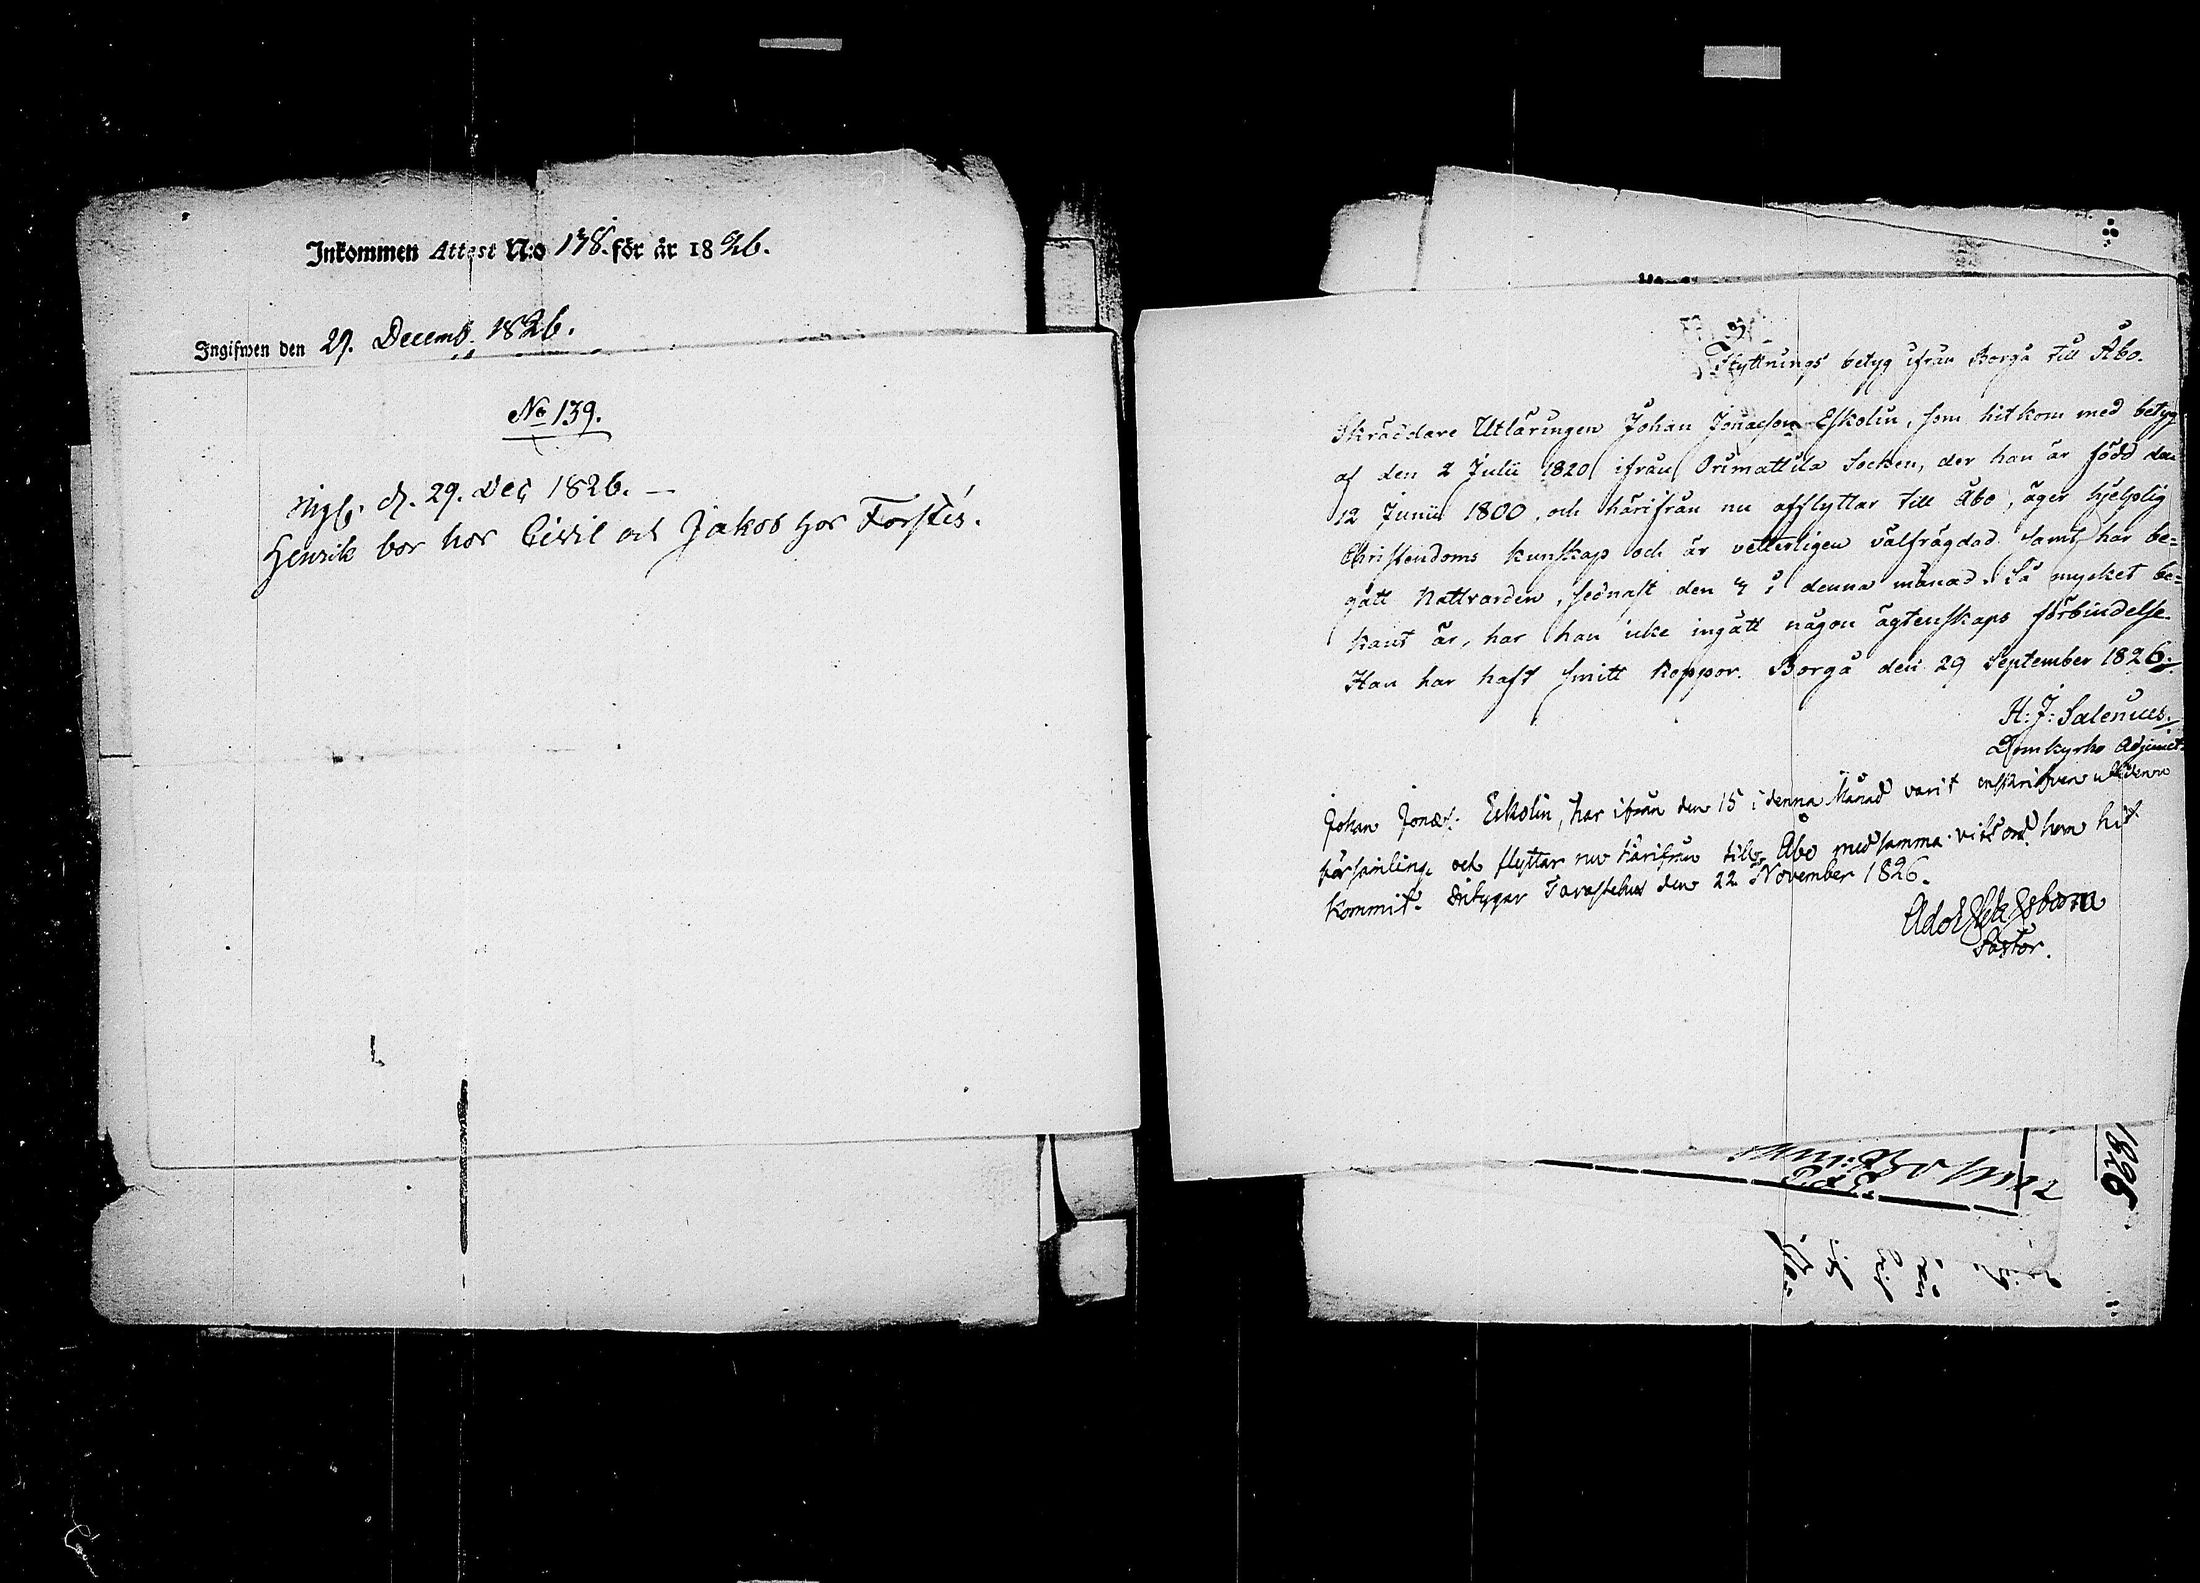 Inkommen Attest N:o 138. för år 1826.
Ingifwen den 29. Decemb. 1826.
No 139.
d. 29. Dec 1826. —
Henrik bor hos Civil och Jakob hos Forstés.
Flyttnings betyg ifrån Borgå till Åbo.
Skräddare Utläringen Johan Jonasson Eskolin, som hitkom med betyg
af den 2 Julii 1820 ifrån Orimattila Socken, der han är född den
12 Junii 1800, och härifrån nu afflyttar till Åbo, äger hjelplig
Christendoms kunskap och är vetterligen välfrägdad samt har be-
gått Nattvarden, sednast den i denna månad. Så mycket be-
kant är, har han icke ingått någon ägtenskaps förbindelse.
Han har haft smitt koppor. Borgå den 29 September 1826.
H: J: Salenius.
Domkyrko Adjunct.
Johan Jonæs: Eskolin, har ifrån den 15 i denna Månad varit enskrifven i denna
församling, och flyttar nu härifrån till Åbo med samma vitsord han hit
kommit. Intygar Tavastehus den 22 November 1826.
Pastor.
1826